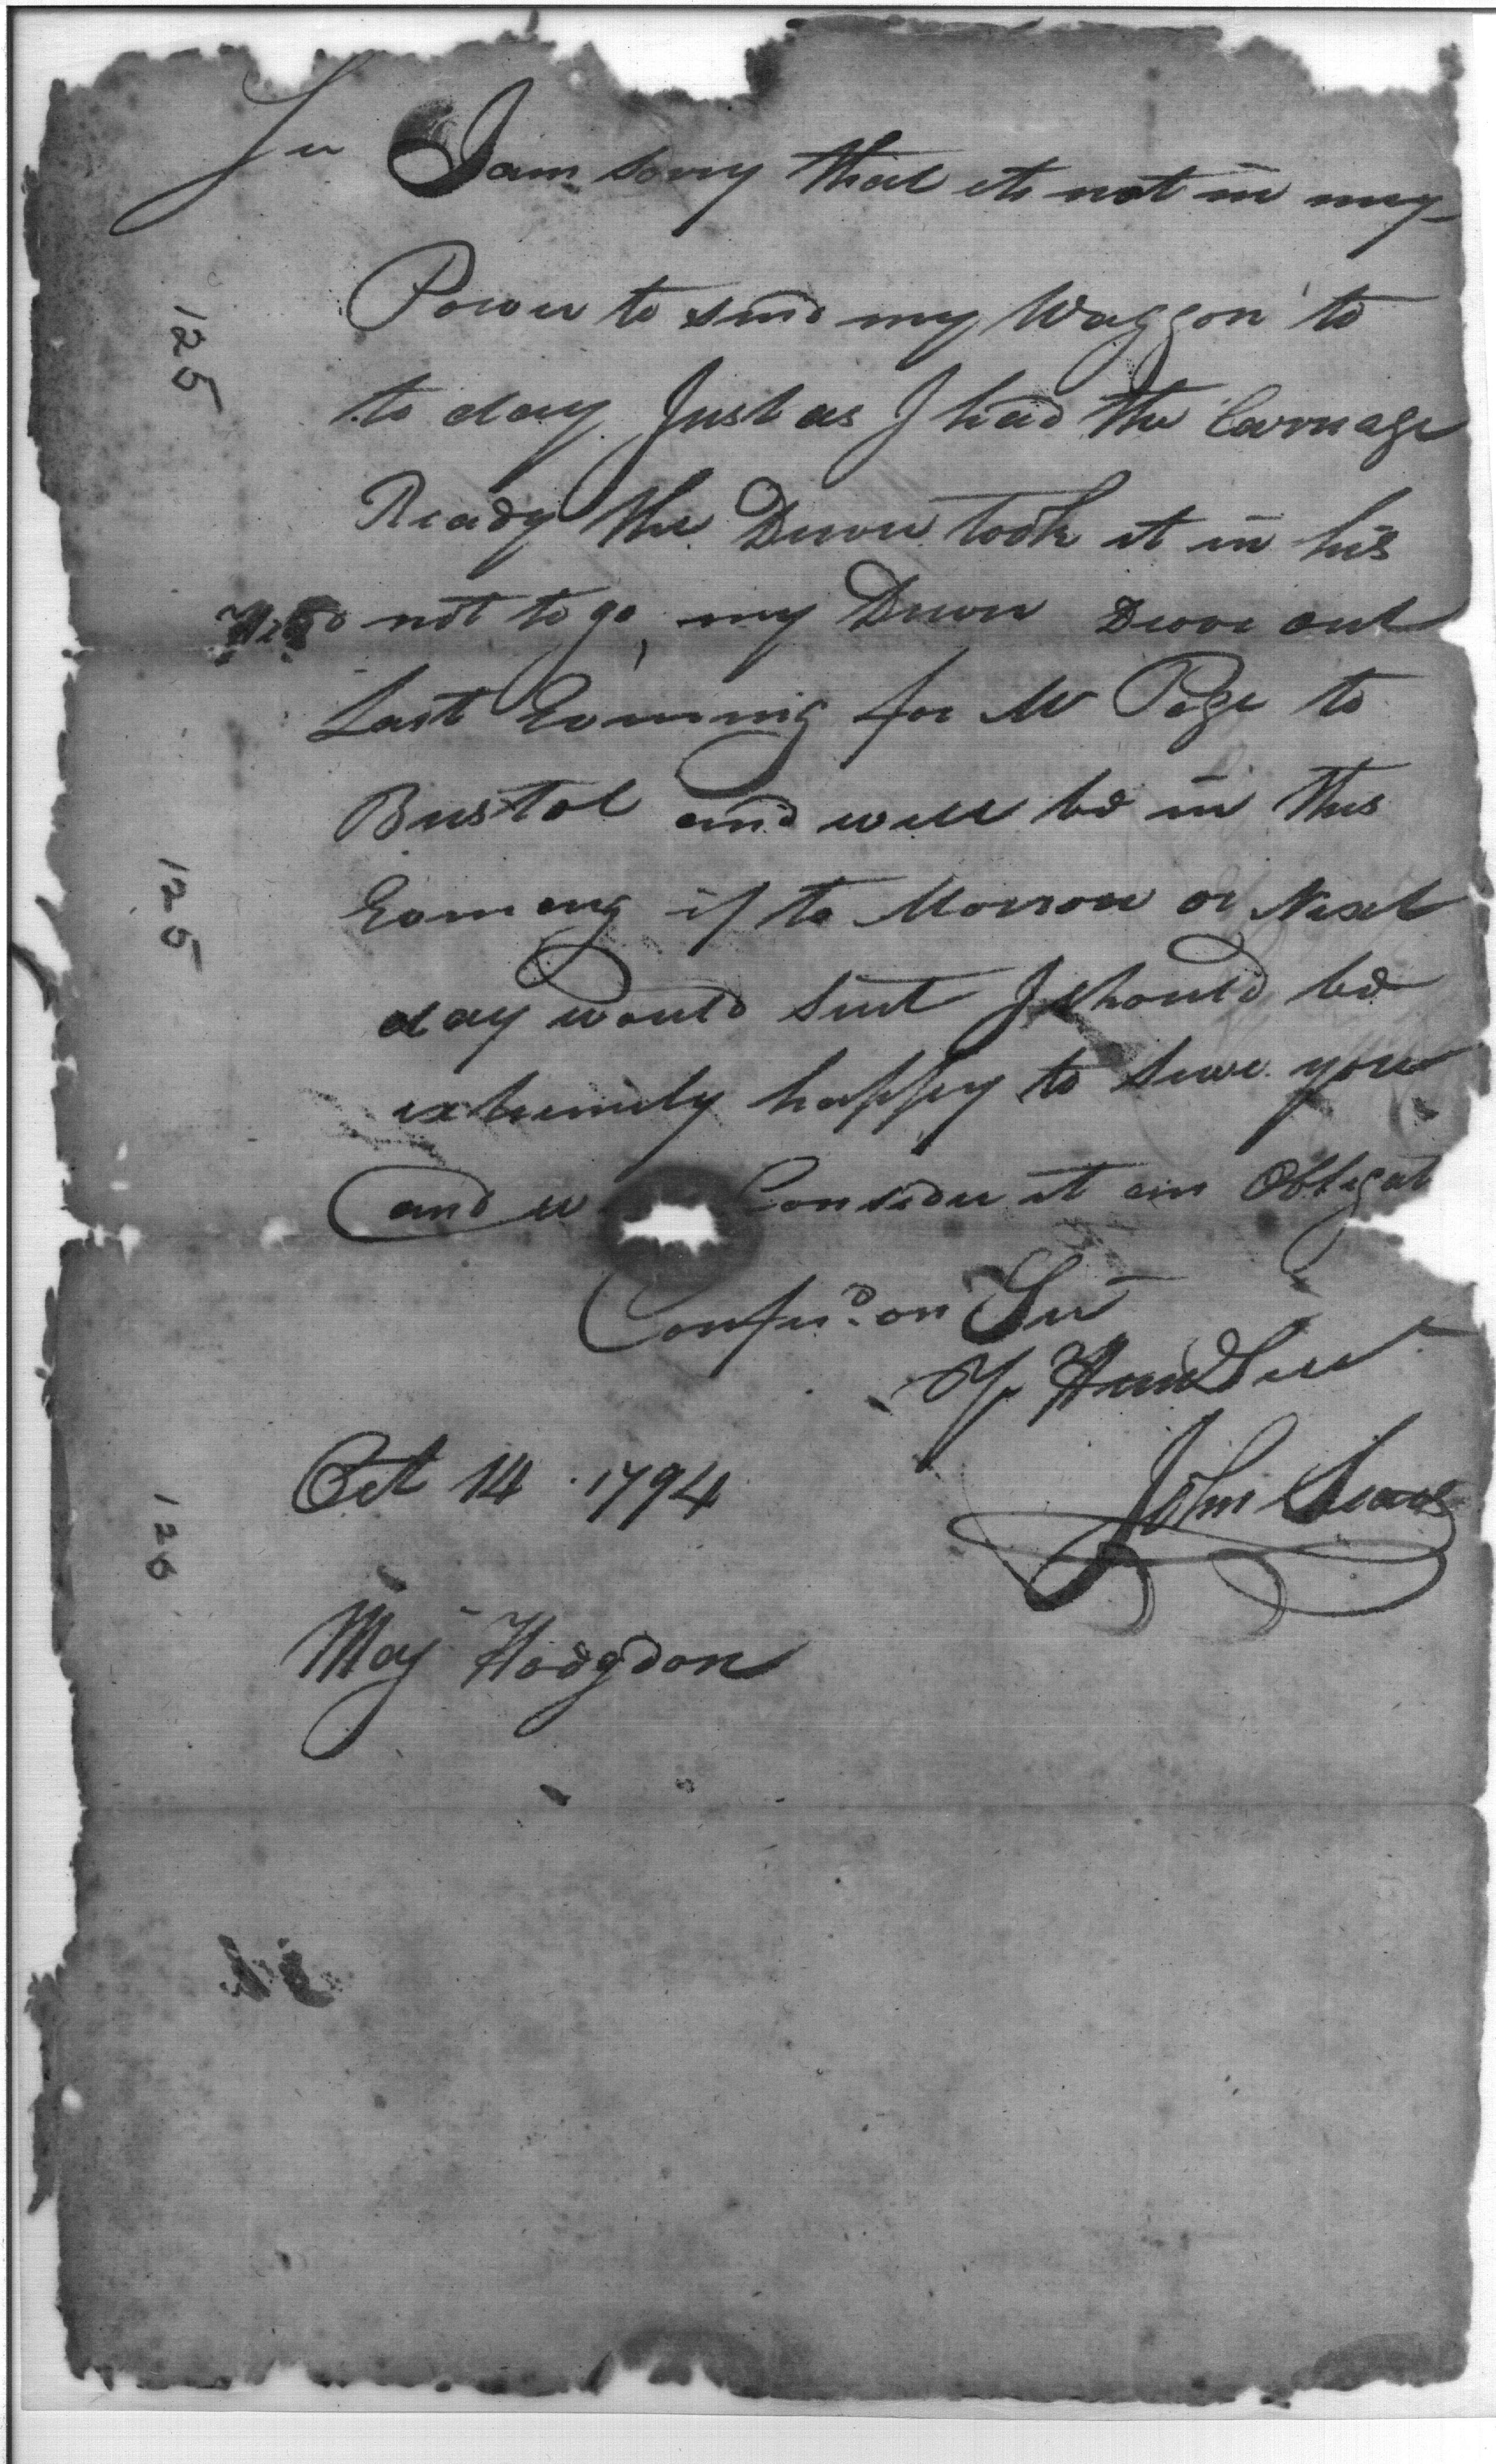 Sir I am sorry that its not in my
Power to send my Waggon to
to day Just as I had the Carriage
Ready the Driver took it in his
Head not to go, my Driver Drove out
Last Evening for Mr Page to
Bristol and will be in this
Evening if to Morrow or Next
day would Suit I should be
extremely happy to Serve you
and Consider it an Obligat
Confer'd on Sir
Yr Humb Sert
John
Oct 14 1794
Maj Hodgdon
125
125
126